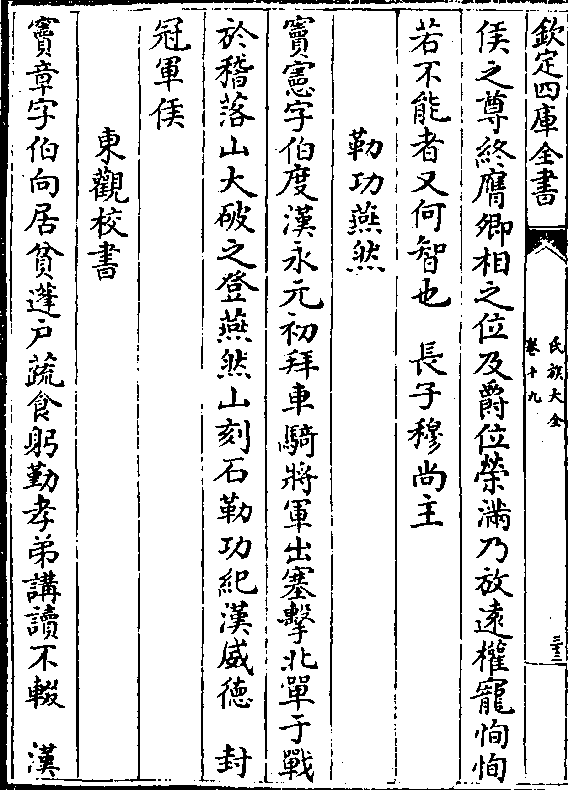 欽定四庫全書
氏族大全
卷十九
三十三
侯之尊終膺卿相之位及爵位榮滿乃放逺權寵恂恂
若不能者又何智也　長子穆尚主
勒功燕然
竇憲字伯度漢永元初拜車騎將軍出塞擊北單于戰
於稽落山大破之登燕然山刻石勒功紀漢威德　封
冠軍侯
東觀校書
竇章字伯向居貧蓬户蔬食躬勤孝弟講讀不輟　漢